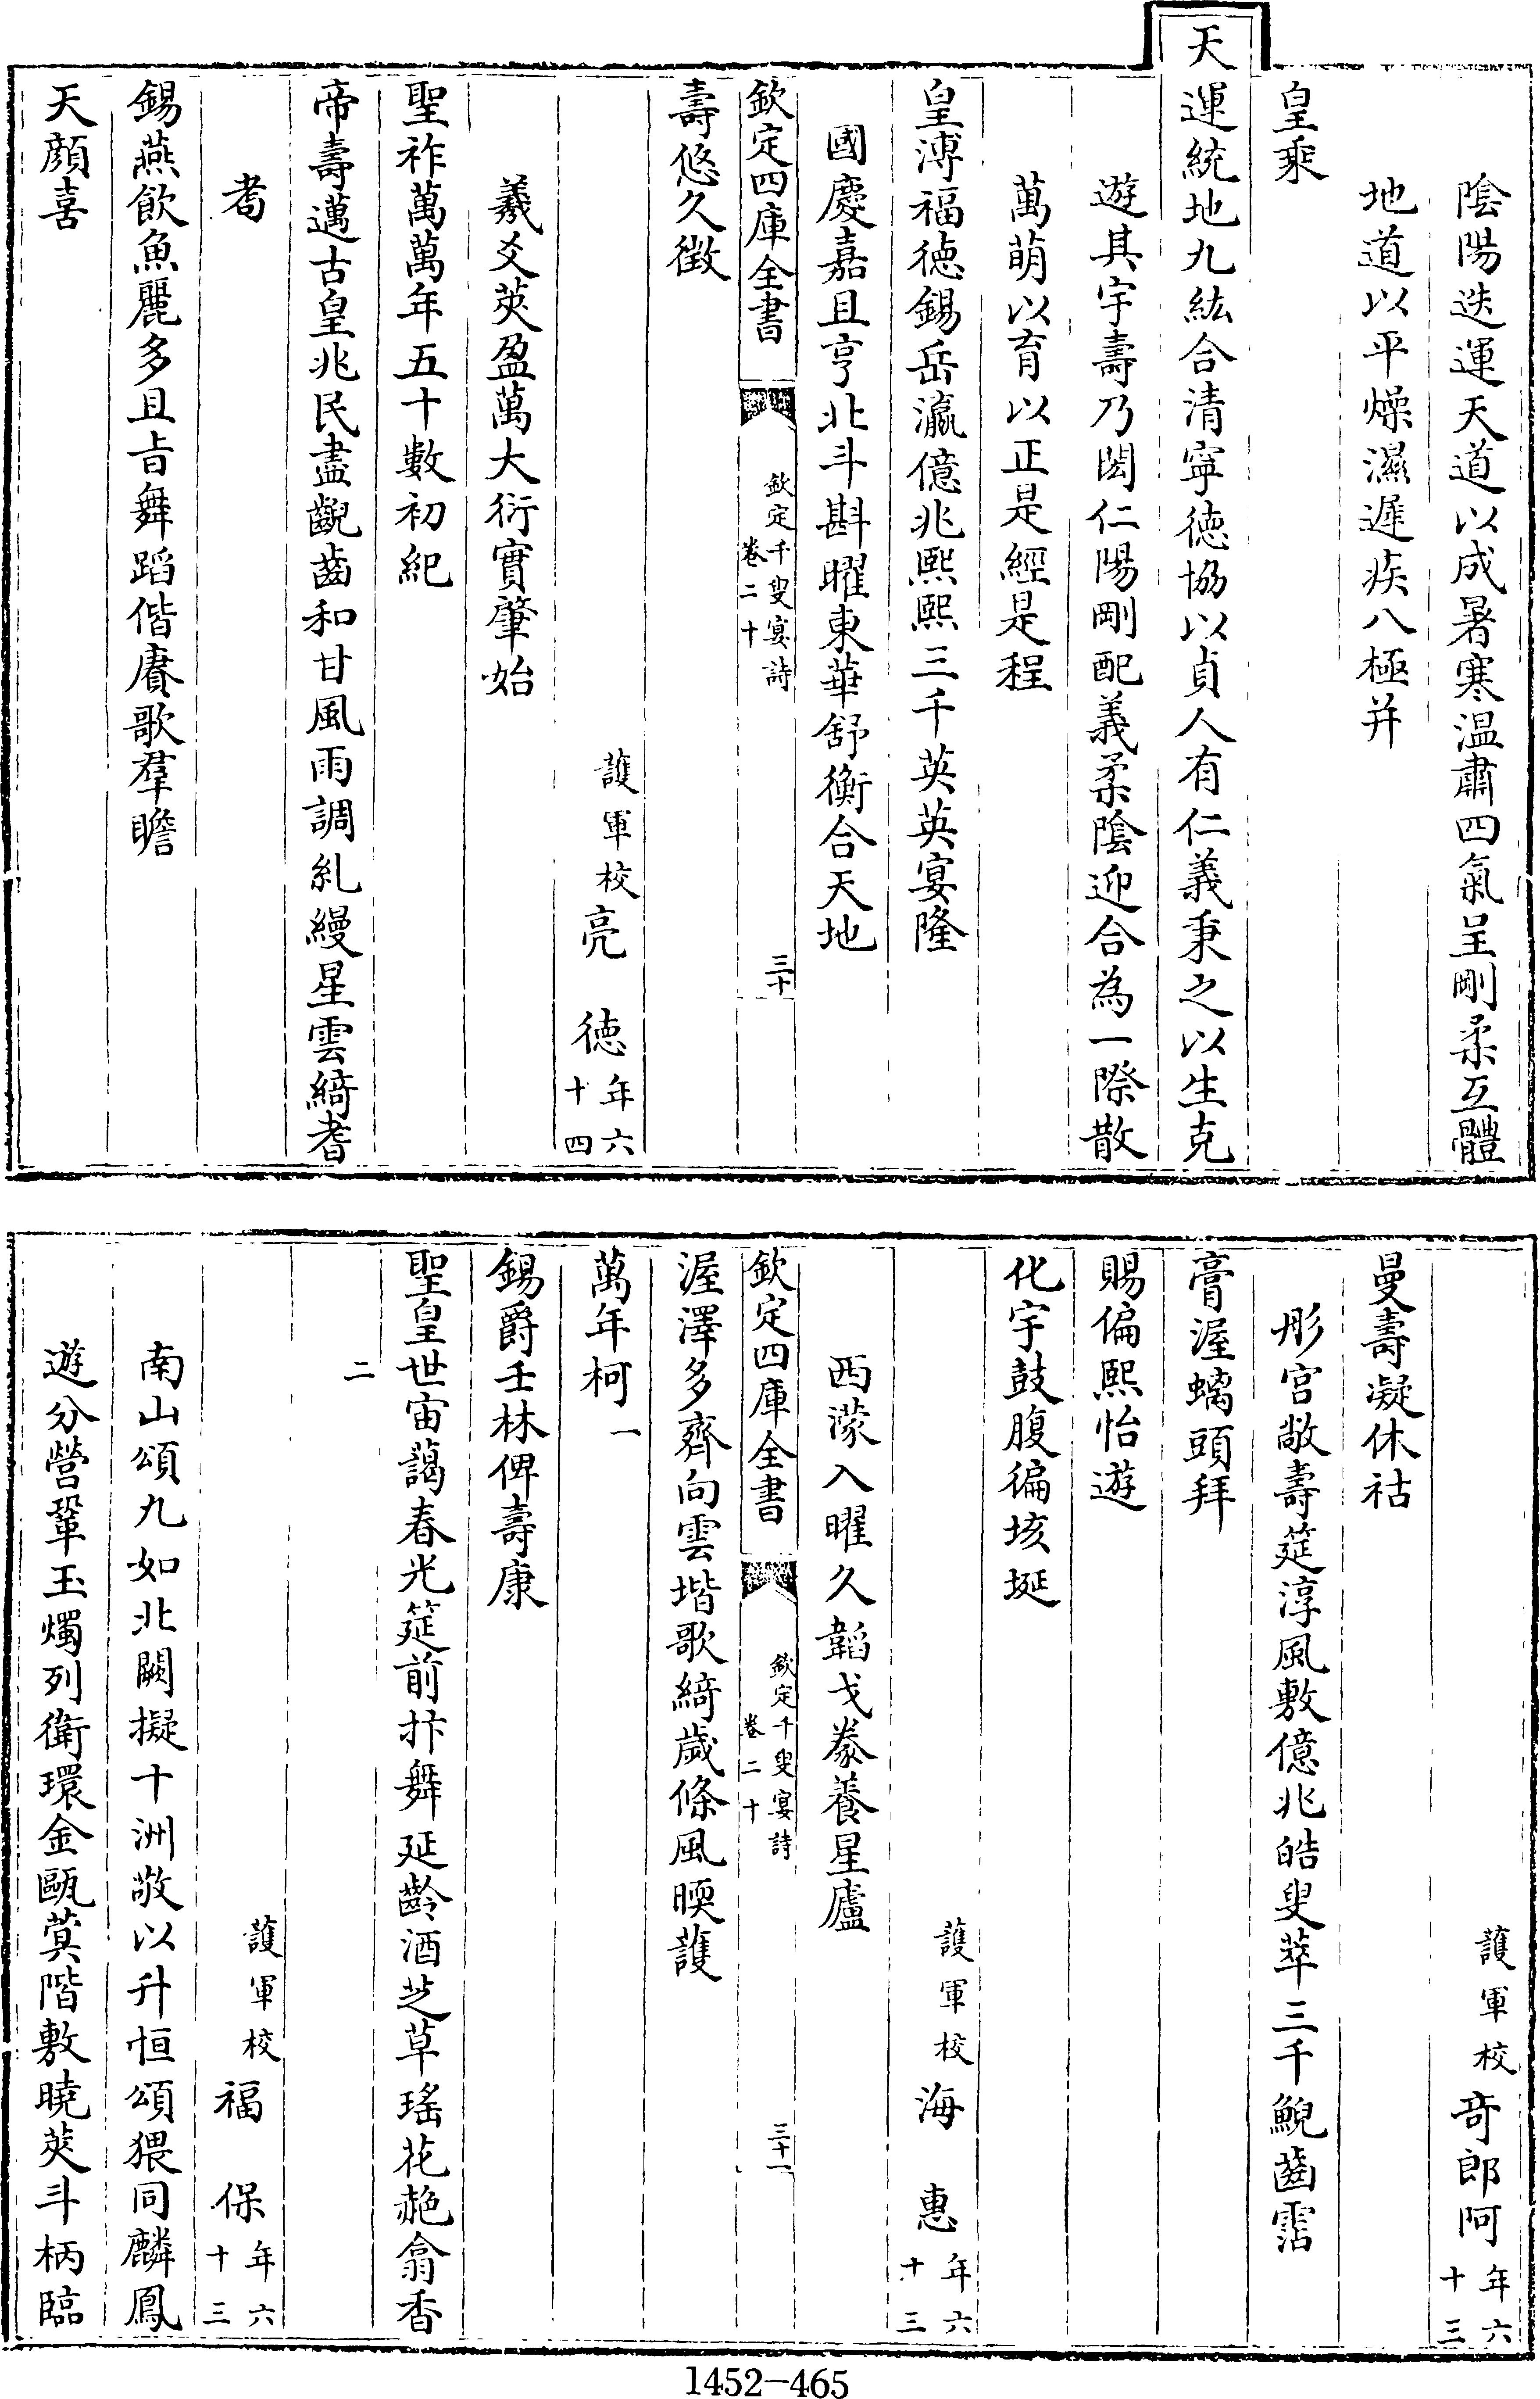 陰陽迭運天道以成暑寒温肅四氣呈剛柔互體
地道以平燥濕遲疾八極并
皇乘
天運統地九紘合清寧徳協以貞人有仁義秉之以生克
遊其宇壽乃閎仁陽剛配義柔陰迎合為一際散
萬萌以育以正是經是程
皇溥福徳錫岳瀛億兆熙熙三千英英宴隆
國慶嘉且亨北斗斟曜東華舒衡合天地
欽定四庫全書
欽定千叟宴詩
卷二十
三十
壽悠久徵
護軍校亮徳年六十四
羲爻莢盈萬大衍實肇始
聖祚萬萬年五十數初紀
帝壽邁古皇兆民盡齯齒和甘風雨調糺縵星雲綺耆
耇
錫燕飲魚麗多且旨舞蹈偕賡歌羣瞻
天顔喜
護軍校竒郎阿年六十三
曼壽凝休祜
彤宫敞壽筵淳風敷億兆皓叟萃三千鯢齒霑
膏渥螭頭拜
賜偏熙怡遊
化宇鼓腹徧垓埏
護軍校海惠年六十三
西濛入曜久韜戈豢養星廬
欽定四庫全書
欽定千叟宴詩
卷二十
三十一
渥澤多齊向雲堦歌綺歲條風暎護
萬年柯一
錫爵壬林俾壽康
聖皇世宙藹春光筵前抃舞延齡酒芝草瑤花赩翕香
二
護軍校福保年六十三
南山頌九如北闕擬十洲敬以升恒頌猥同麟鳳
遊分營鞏玉燭列衛環金甌蓂階敷曉莢斗柄臨
1452-465